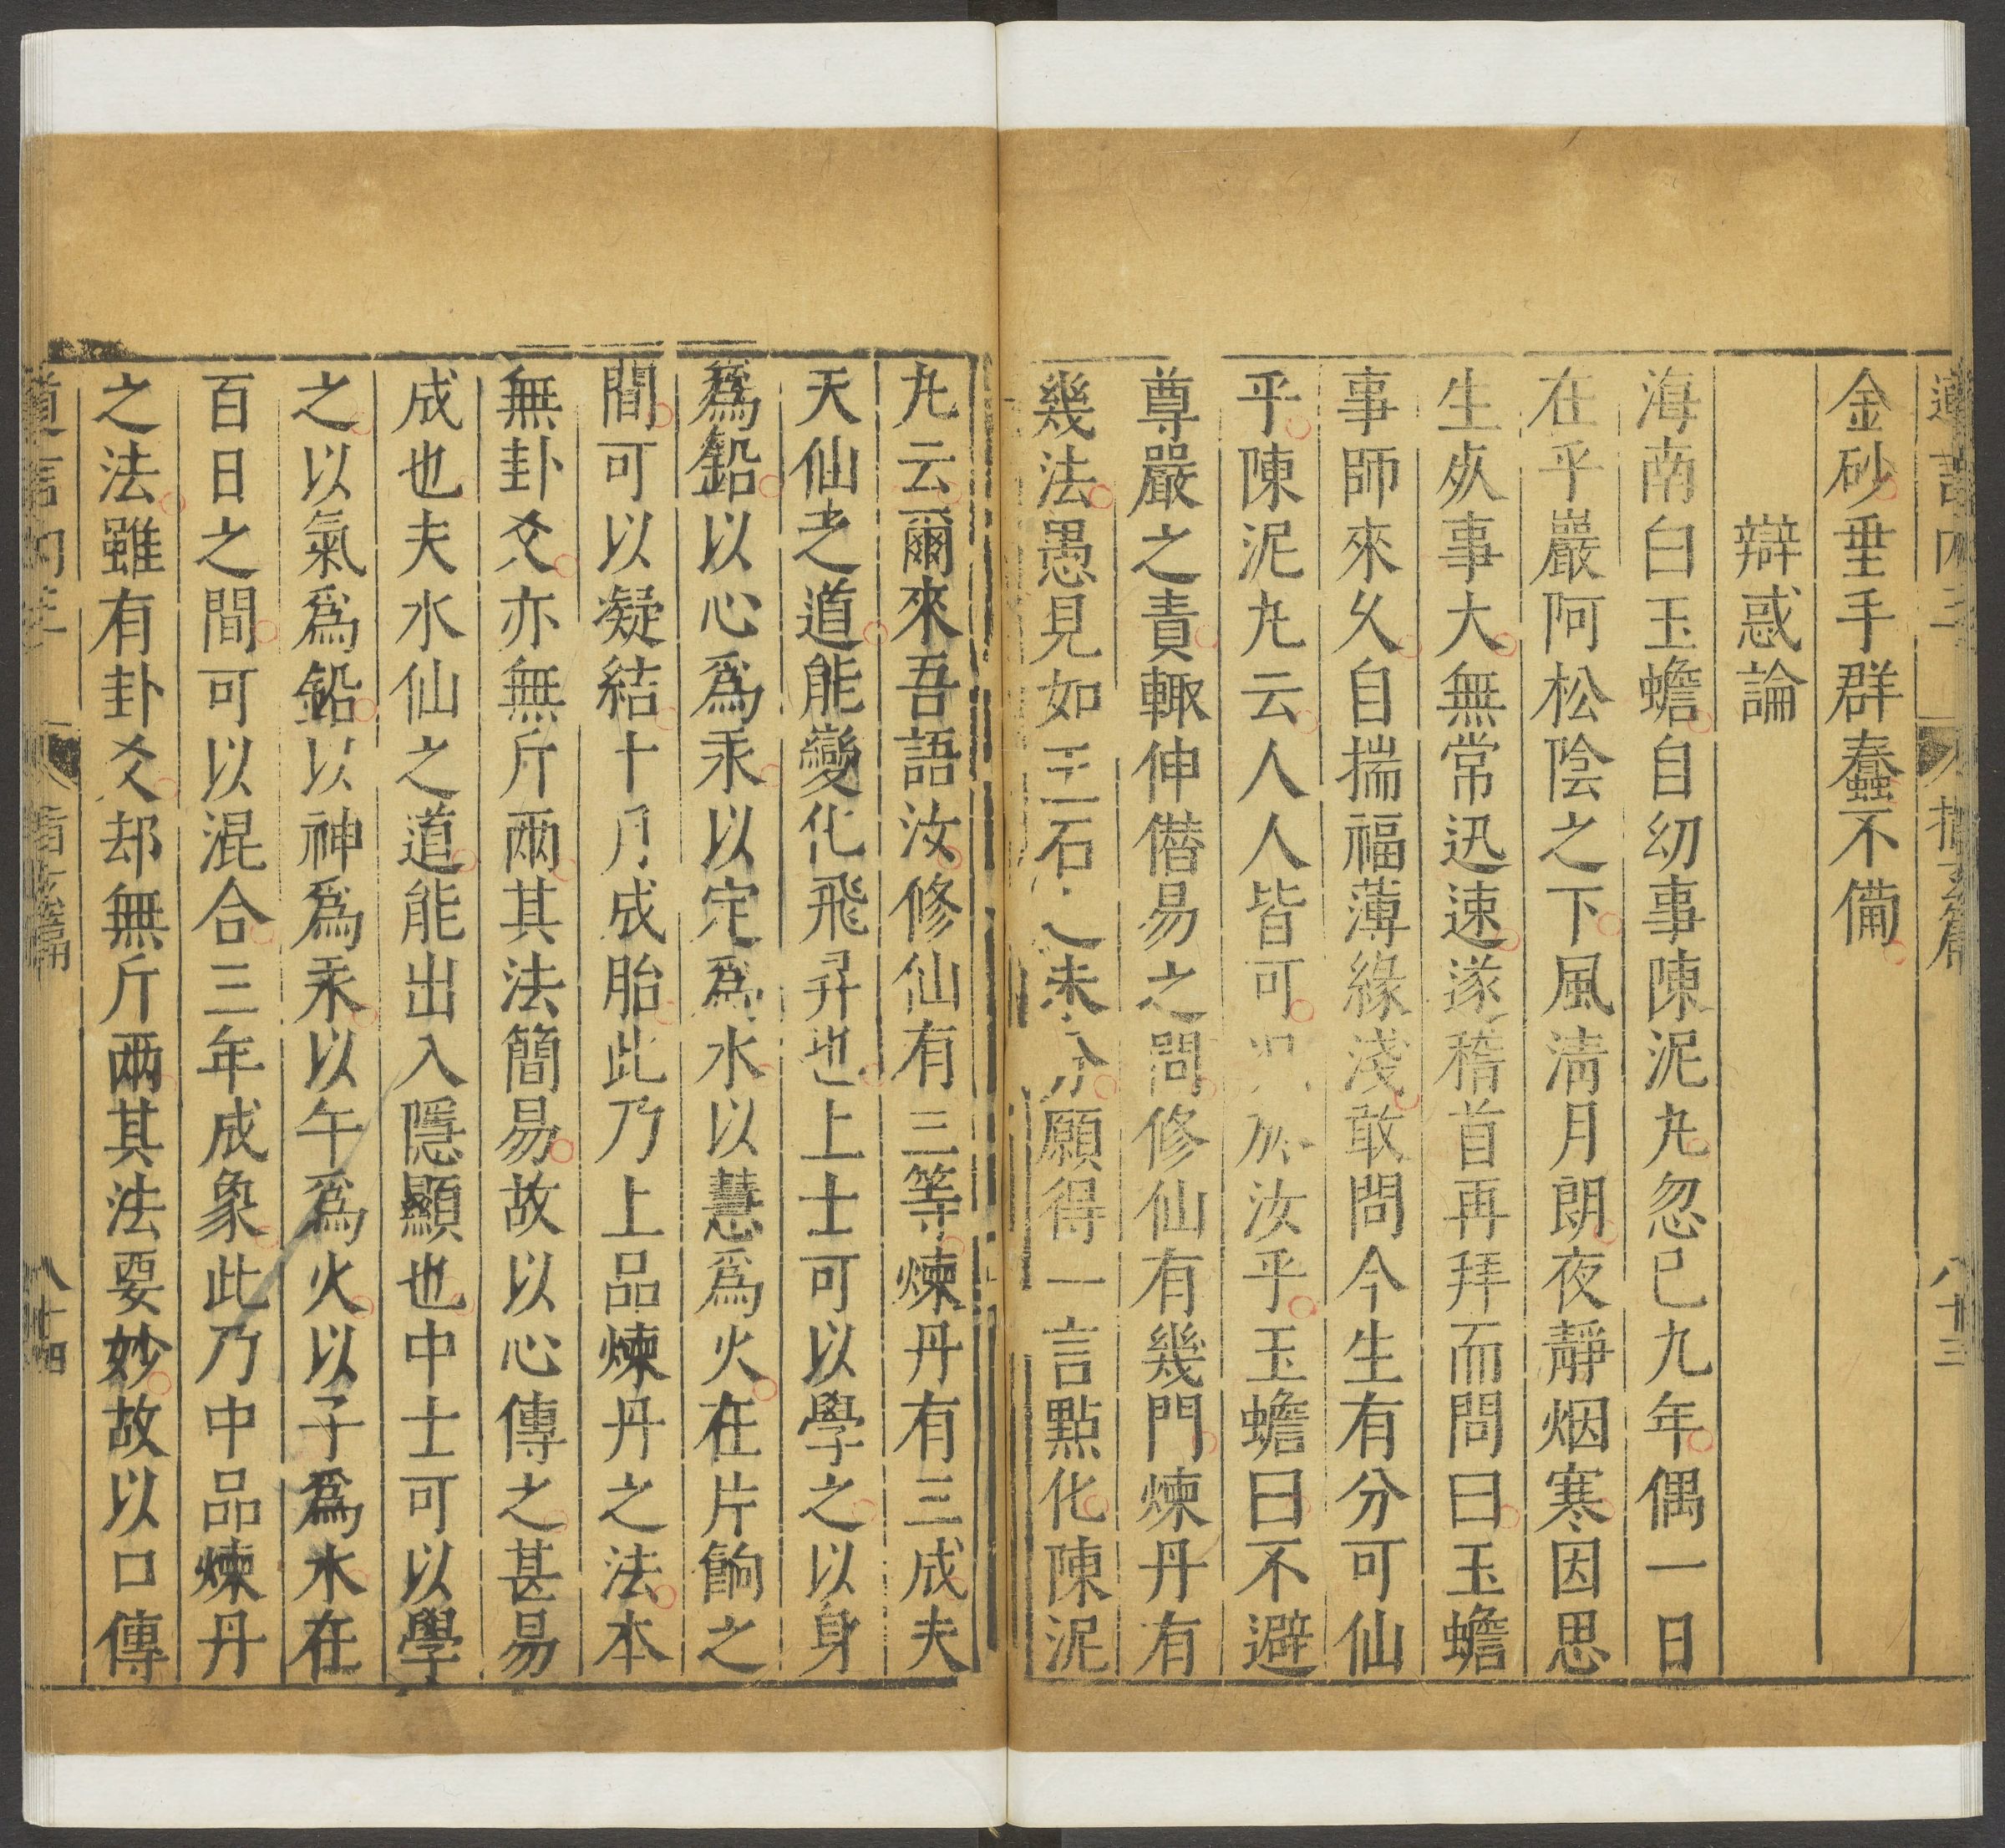 金砂垂手群蠢不備
辯惑論
海南白玉蟾自幼事陳泥丸忽已九年偶一日
在乎巖阿松陰之下風清月朗夜靜烟寒因思
生死事大無常迅速遂稽首再拜而問曰玉蟾
事師來久自揣福薄緣淺敢問今生有分可仙
乎陳泥丸云人人皆可況於汝乎玉蟾曰不避
尊嚴之責輙伸僭易之問修仙有幾門煉丹有
幾法愚見如玉石之未分願得一言點化陳泥
丸云爾來吾語汝修仙有三等煉丹有三成夫
天仙之道能變化飛昇也上士可以學之以身
爲鉛以心爲汞以定爲水以慧爲火在片餉之
間可以凝結十月成胎此乃上品煉丹之法本
無卦爻亦無斤兩其法簡易故以心傳之甚易
成也夫水仙之道能出入隱顯也中士可以學
之以氣爲鉛以神爲汞以午爲火以子爲水在
百日之間可以混合三年成象此乃中品煉丹
之法雖有卦爻却無斤兩其法要妙故以口傳